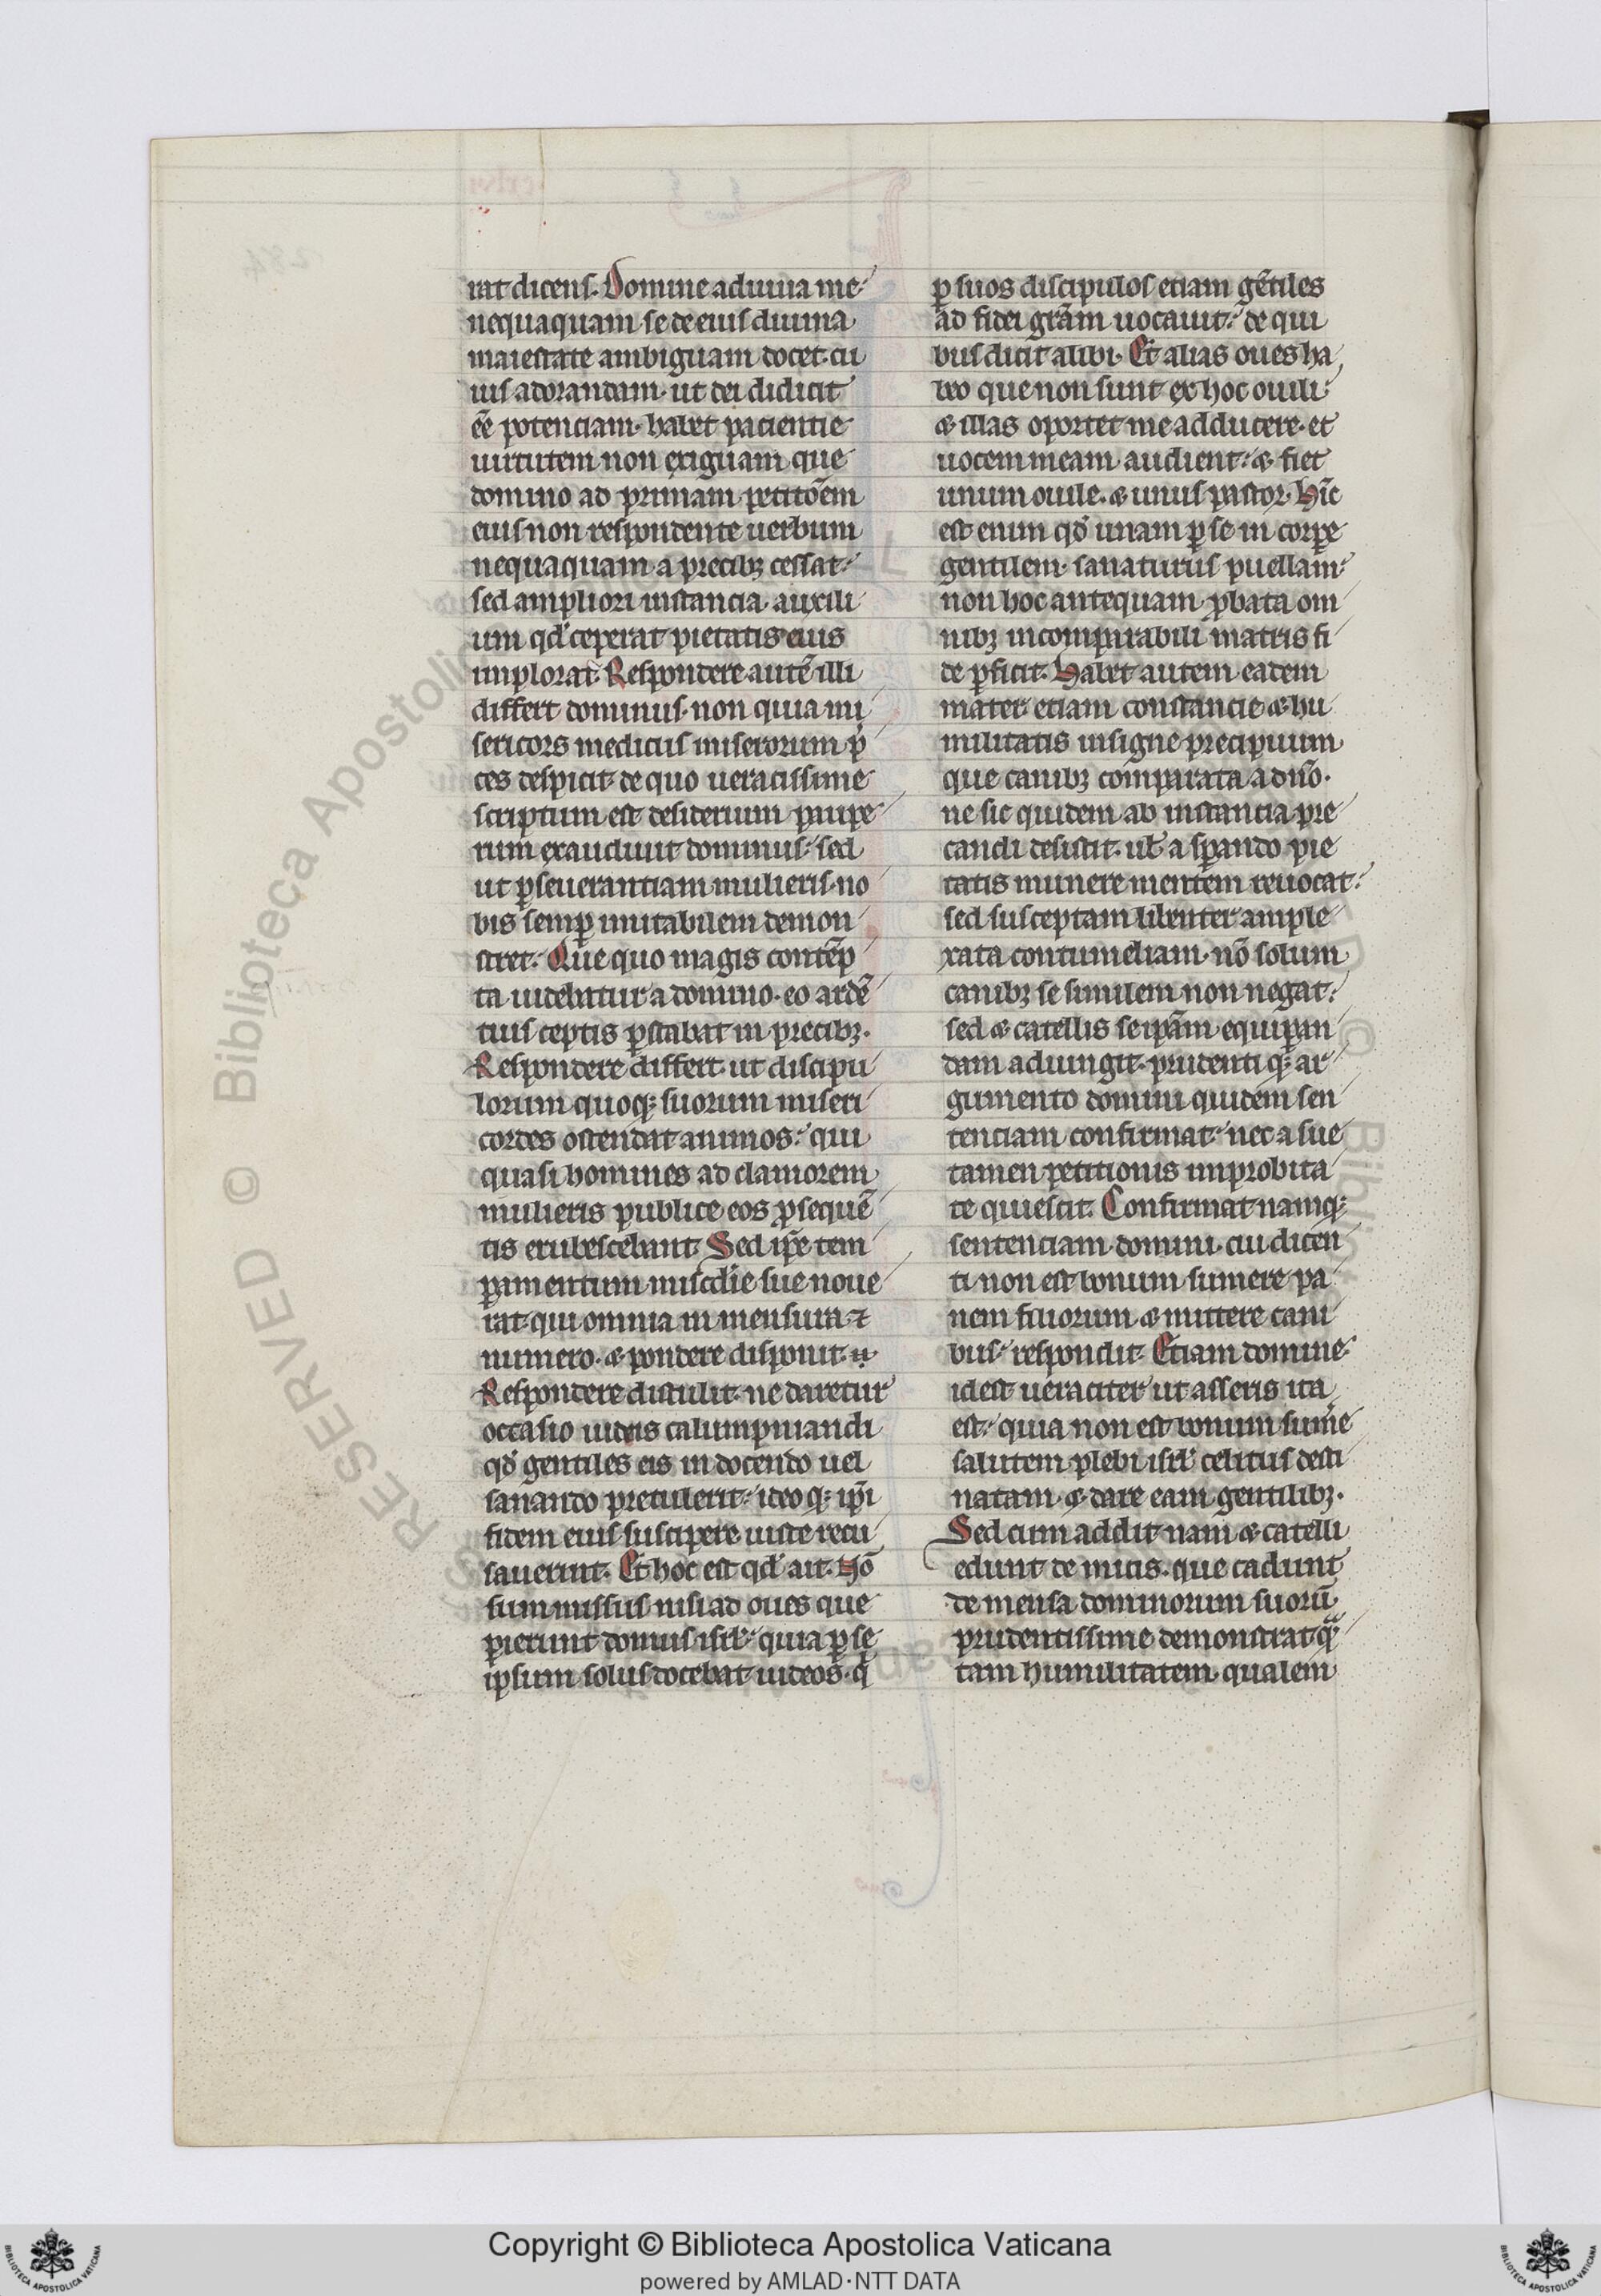 rat dicens. Domine adiuua me
nequaquam se de eius diuina
maiestate ambiguam docet. cu
ius adorandam. ut dei didicit
ee̅ potenciam. habet pacientie
uirtutem non exiguam que
domino ad primam petito̅em
eius non respondente uerbum
nequaquam a precibꝫ cessat.
sed ampliori instancia auxili
um qd' ceperat pietatis eius
implorat. Respondere aute̅ illi
differt dominus. non quia mi
sericors medicus miserorum p̅
ces despicit. de quo ueracissime
scriptum est desiderium paupe
rum exaudiuit dominus. sed
ut ꝑseuerantiam mulieris. no
bis semꝑ imitabilem demon
stret. Que quo magis conte̅p
ta uidebatur a domino. eo arde̅
tius ceptis ꝑstabat in precibꝫ.
Respondere differt. ut discipu
lorum quoqꝫ suorum miseri
cordes ostendat animos. qui
quasi homines ad clamorem
mulieris publice eos ꝓseque̅
tis erubescebant. Sed ipse tem
ꝑamentum miscd̅ie sue noue
rat. qui omnia in mensura ⁊
numero. & pondere disponit.
Respondere distulit. ne daretur
occasio iudeis calumpniandi
qd' gentiles eis in docendo uel
sanando pretulerit. ideo qꝫ ip̅i
fidem eius suscipere iuste recu
sauerint. Et hoc est qd' ait. No̅
sum missus nisi ad oues que
ꝑierunt domus isrl̅. quia ꝑ se
ipsum solus docebat iudeos. q̅
ꝑ suos discipulos etiam ge̅tiles
ad fidei gra̅m uocauit. de qui
bus dicit alibi. Et alias oues ha
beo que non sunt ex hoc ouili
& illas oportet me adducere. et
uocem meam audient. & fiet
unum ouile. & unus pastor. Hi̅c
est enim qd' unam ꝑ se in corpe
gentilem sanaturus puellam
non hoc antequam ꝓbata om
nibꝫ incomparabili matris fi
de ꝑficit. Habet autem eadem
mater etiam constancie & hu
militatis insigne precipuum
que canibꝫ comparata a dn̅o.
ne sic quidem ab instancia pre
candi desistit. ul̅ a sꝑando pie
tatis munere mentem reuocat.
sed susceptam libenter ample
xata contumeliam. no̅ solum
canibꝫ se similem non negat.
sed & catellis se ipa̅m equipan
dam adiungit. prudenti qꝫ ar
gumento domini quidem sen
tenciam confirmat. nec a sue
tamen petitionis improbita
te quiescit. Confirmat namqꝫ
sentenciam domini. cui dicen
ti non est bonum sumere pa
nem filiorum & mittere cani
bus. respondit. Etiam domine
id est ueraciter ut asseris ita
est. quia non est bonum sum̅e
salutem plebi isrl̅ celitus desti
natam. & dare eam gentilibꝫ.
Sed cum addit nam & catelli
edunt de micis. que cadunt
de mensa dominorum suoru̅
prudentissime demonstrat qᵃ
tam humilitatem. qualem
Biblioteca Apostolica
RESERVED ©
Copyright © Biblioteca Apostolica Vaticana
powered by AMLAD·NTT DATA